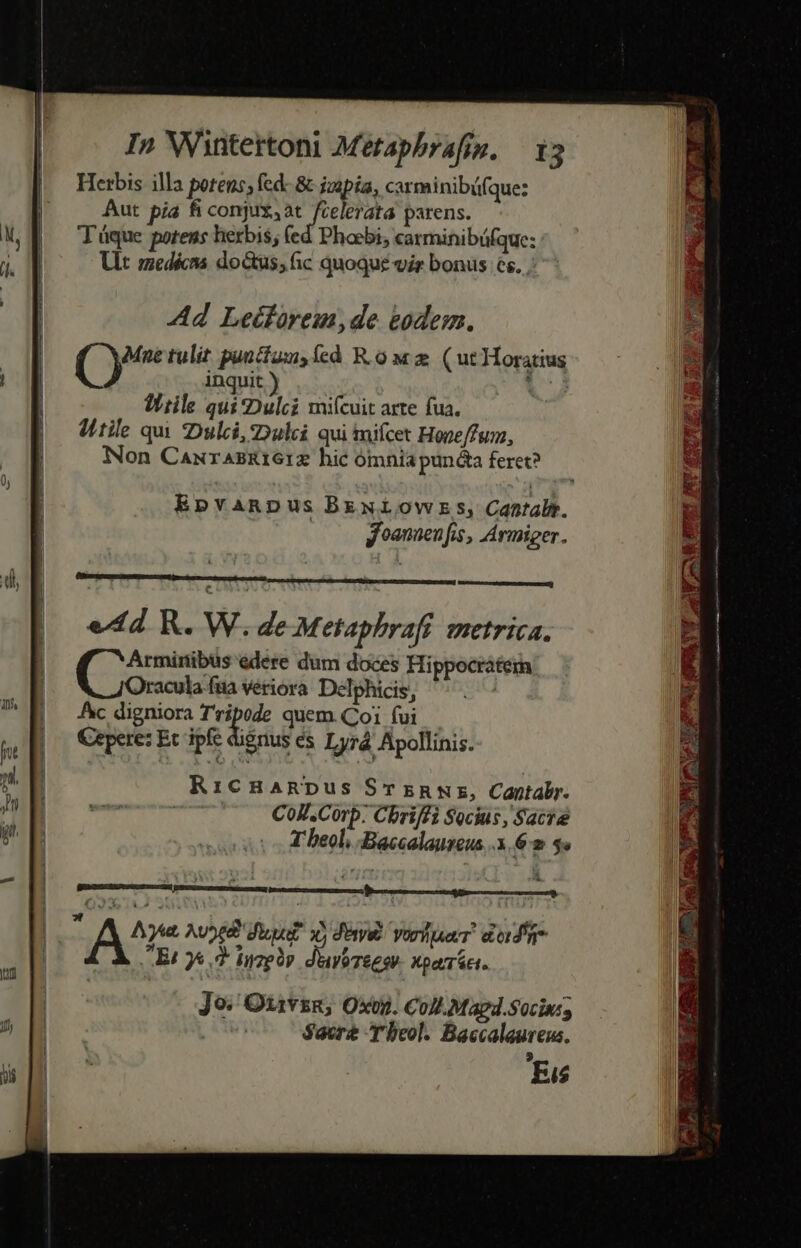 In VVintertoni Metaphrasin. 13
Herbis illa potens, sed & impia, carminibúsque:
Aut pia si conjux, at scelerata parens.
Túque potens herbis, sed Phœbi, carminibúsque:
Ut medicus doctus, sic quoque vir bonus es.
Ad Lectorem, de eodem.
OMne tulit punctum, sed ROMÆ (ut Horatius
inquit)
Utile qui Dulci miscuit arte sua.
Utile qui Dulci, Dulci qui miscet Honestum,
Non CANTABRIGIÆ hic omnia puncta feret?
EDVARDUS BENLOWES, Cantabr.
Joannensis, Armiger.
Ad R. W. de Metaphrasi metrica.
CArminibus edere dum doces Hippocratem
Oracula sua veriora Delphicis,
Ac digniora Tripode quem Coi sui
Cepere: Et ipse dignus es Lyrá Apollinis.
RICHARDUS STERNE, Cantabr.
Coll. Corp. Christi Socius, Sacræ
Theol. Baccalaureus. 1625.
Jo. OLIVER, Oxon. Coll. Magd. Socius,
Sacræ Theol. Baccalaureus.
Εἰς